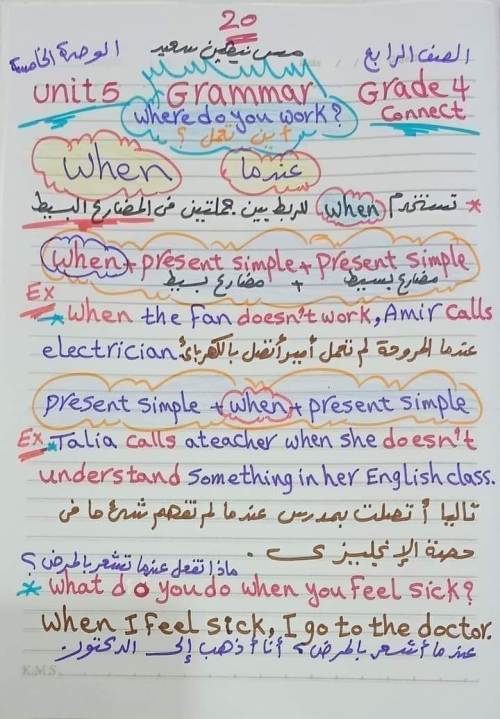 20
الصف الرابع مس نيفين سعيد الوحدة الخامسة
Unit 5 Grammar Grade 4
Where do you work? Connect
أين تعمل ؟
When عندما
* تستخدم when للربط بين جملتين فى المضارع البسيط
When + present simple + present simple
مضارع بسيط + مضارع بسيط
Ex
* When the fan doesn't work, Amir calls
electrician. عندما المروحة لم تعمل أمير أتصل بالكهربائى
present simple + when + present simple
Ex * Talia calls a teacher when she doesn't
understand something in her English class.
تاليا أتصلت بمدرس عندما لم تفهم شئ ما فى
حصة الإنجليزى .
ماذا تفعل عندما تشعر بالمرض ؟
* What do you do when you feel sick?
When I feel sick, I go to the doctor.
عندما أشعر بالمرض ؟ أنا أذهب إلى الدكتور.
K.M.S.